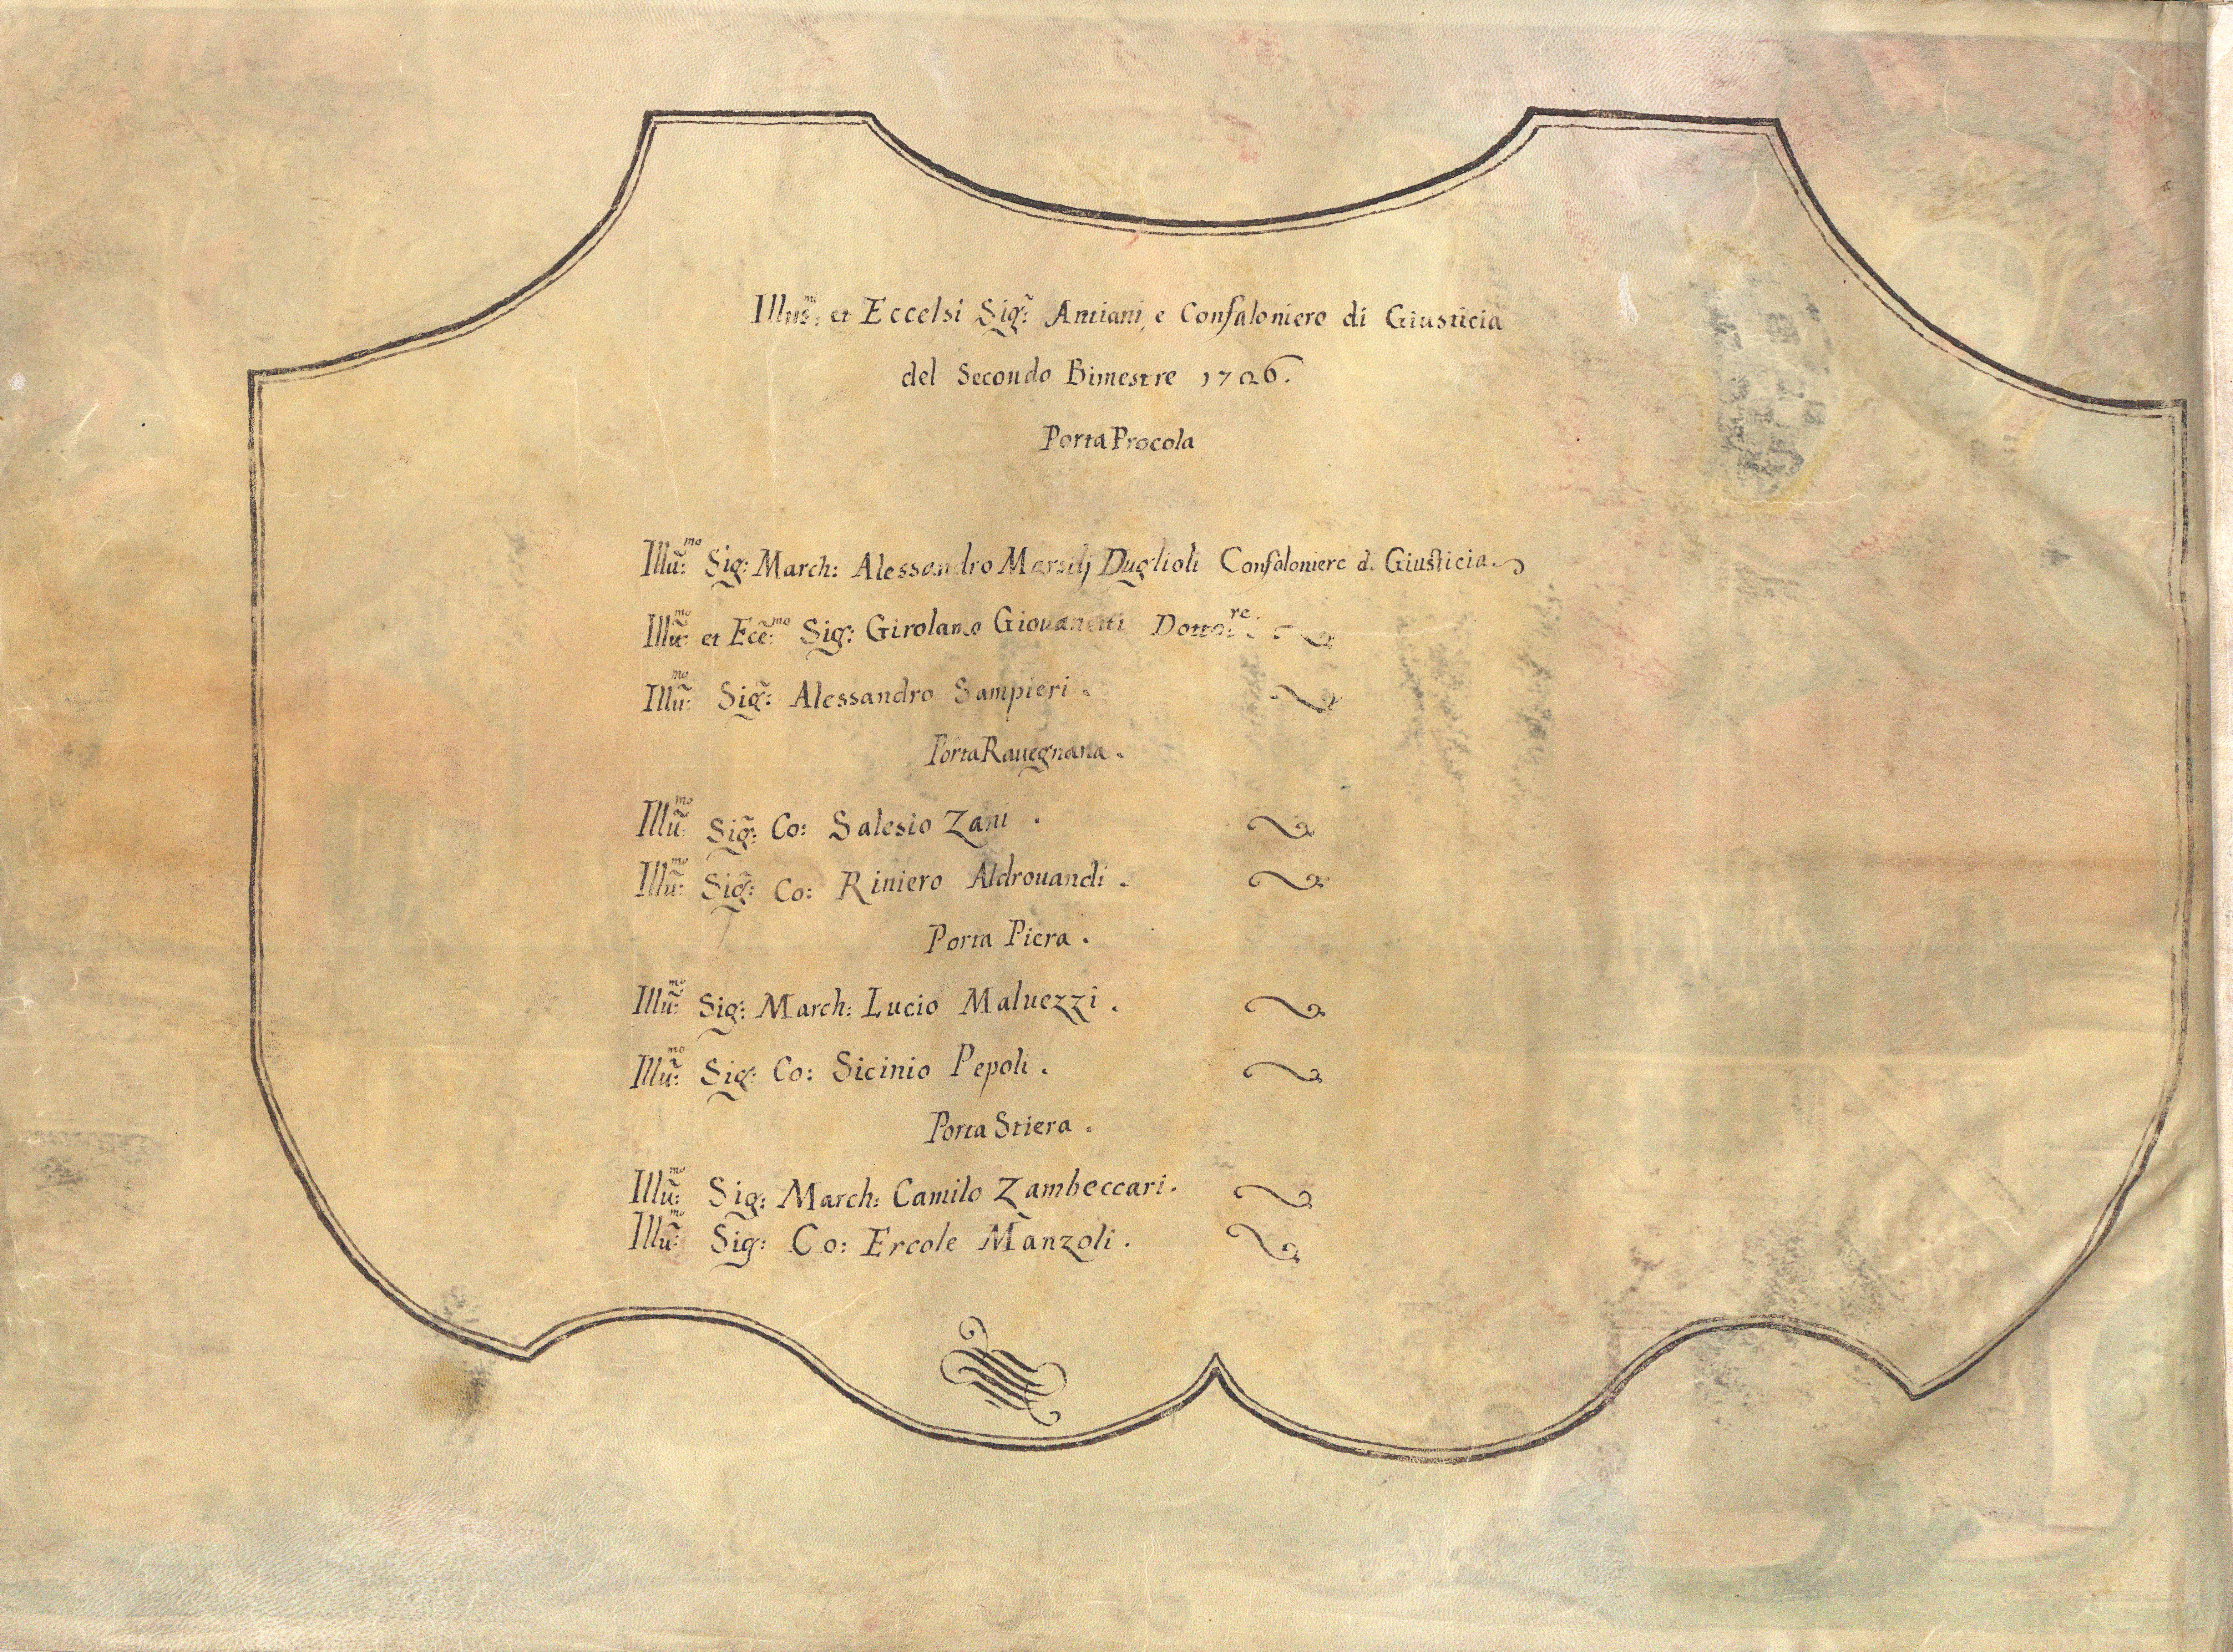 Illus:mi et Eccelsi Sig̃: Antiani, e Confaloniero di Giusticia
del Secondo Bimestre 1706.
Porta Procola
Illũ:mo Sig: March: Alessandro Marsilj Duglioli Confaloniere d. Giusticia.
Illũ:mo et Ecc̃:mo Sig: Girolamo Giouanetti Dotto:re
Illũ:mo Sig̃: Alessandro Sampieri.
Porta Rauegnana.
Illũ:mo Sig̃: Co: Salesio Zani.
Illũ:mo Sig̃: Co: Riniero Aldrouandi.
Porta Piera.
Illũ:mo Sig: March: Lucio Maluezzi.
Illũ:mo Sig: Co: Sicinio Pepoli.
Porta Stiera.
Illũ:mo Sig: March: Camilo Zambeccari.
Illũ:mo Sig: Co: Ercole Manzoli.